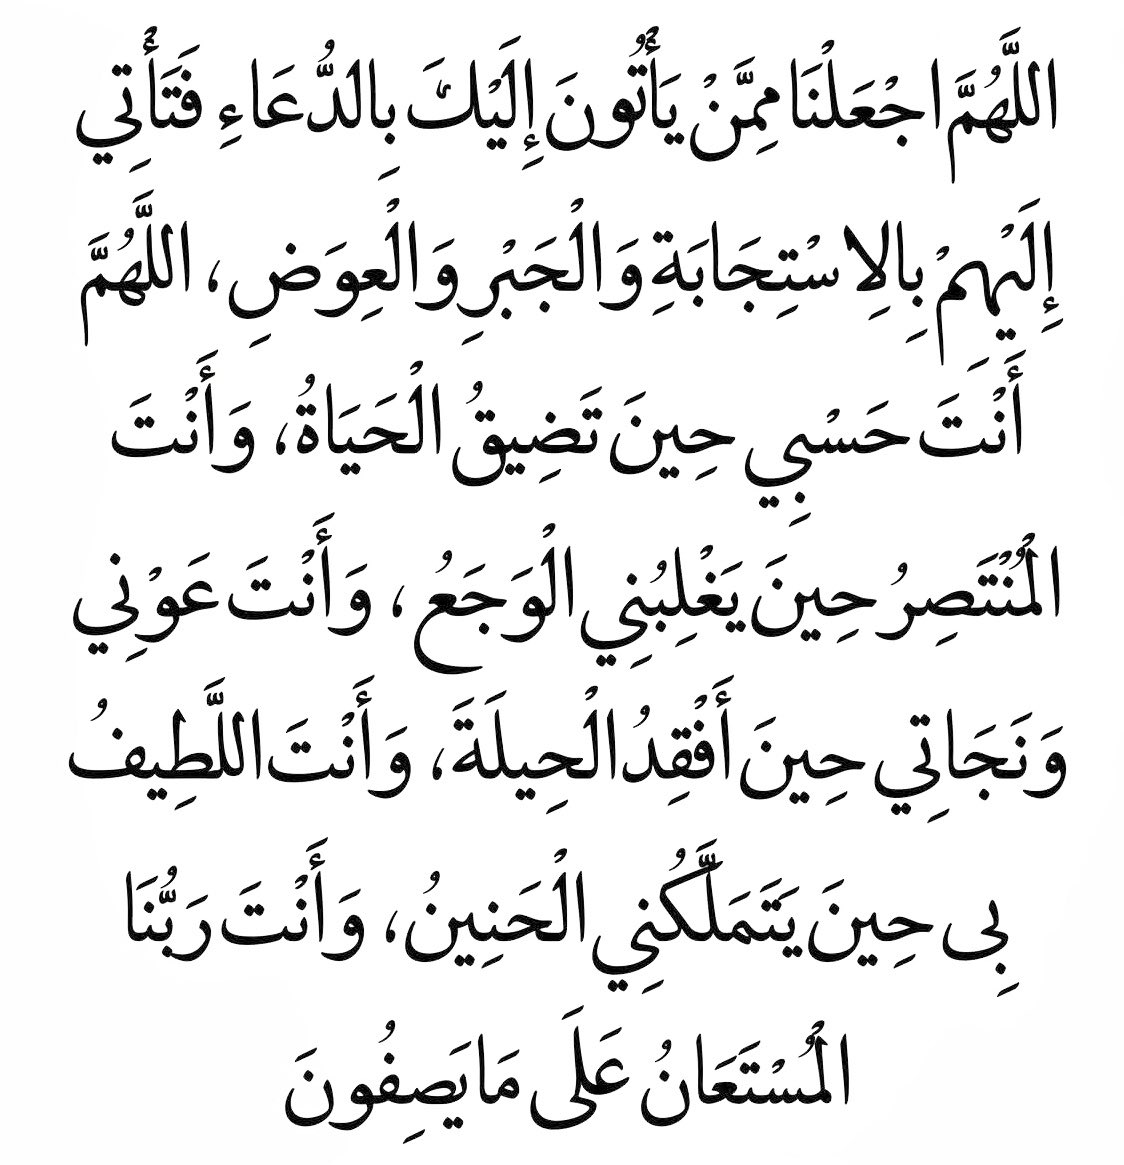 اللَّهُمَّ اجْعَلْنَا مِمَّنْ يَأْتُونَ إِلَيْكَ بِالدُّعَاءِ فَتَأْتِي
إِلَيْهِمْ بِالِاسْتِجَابَةِ وَالْجَبْرِ وَالْعِوَضِ، اللَّهُمَّ
أَنْتَ حَسْبِي حِينَ تَضِيقُ الْحَيَاةُ، وَأَنْتَ
الْمُنْتَصِرُ حِينَ يَغْلِبُنِي الْوَجَعُ، وَأَنْتَ عَوْنِي
وَنَجَاتِي حِينَ أَفْقِدُ الْحِيلَةَ، وَأَنْتَ اللَّطِيفُ
بِى حِينَ يَتَمَلَّكُنِي الْحَنِينُ، وَأَنْتَ رَبُّنَا
الْمُسْتَعَانُ عَلَى مَا يَصِفُونَ